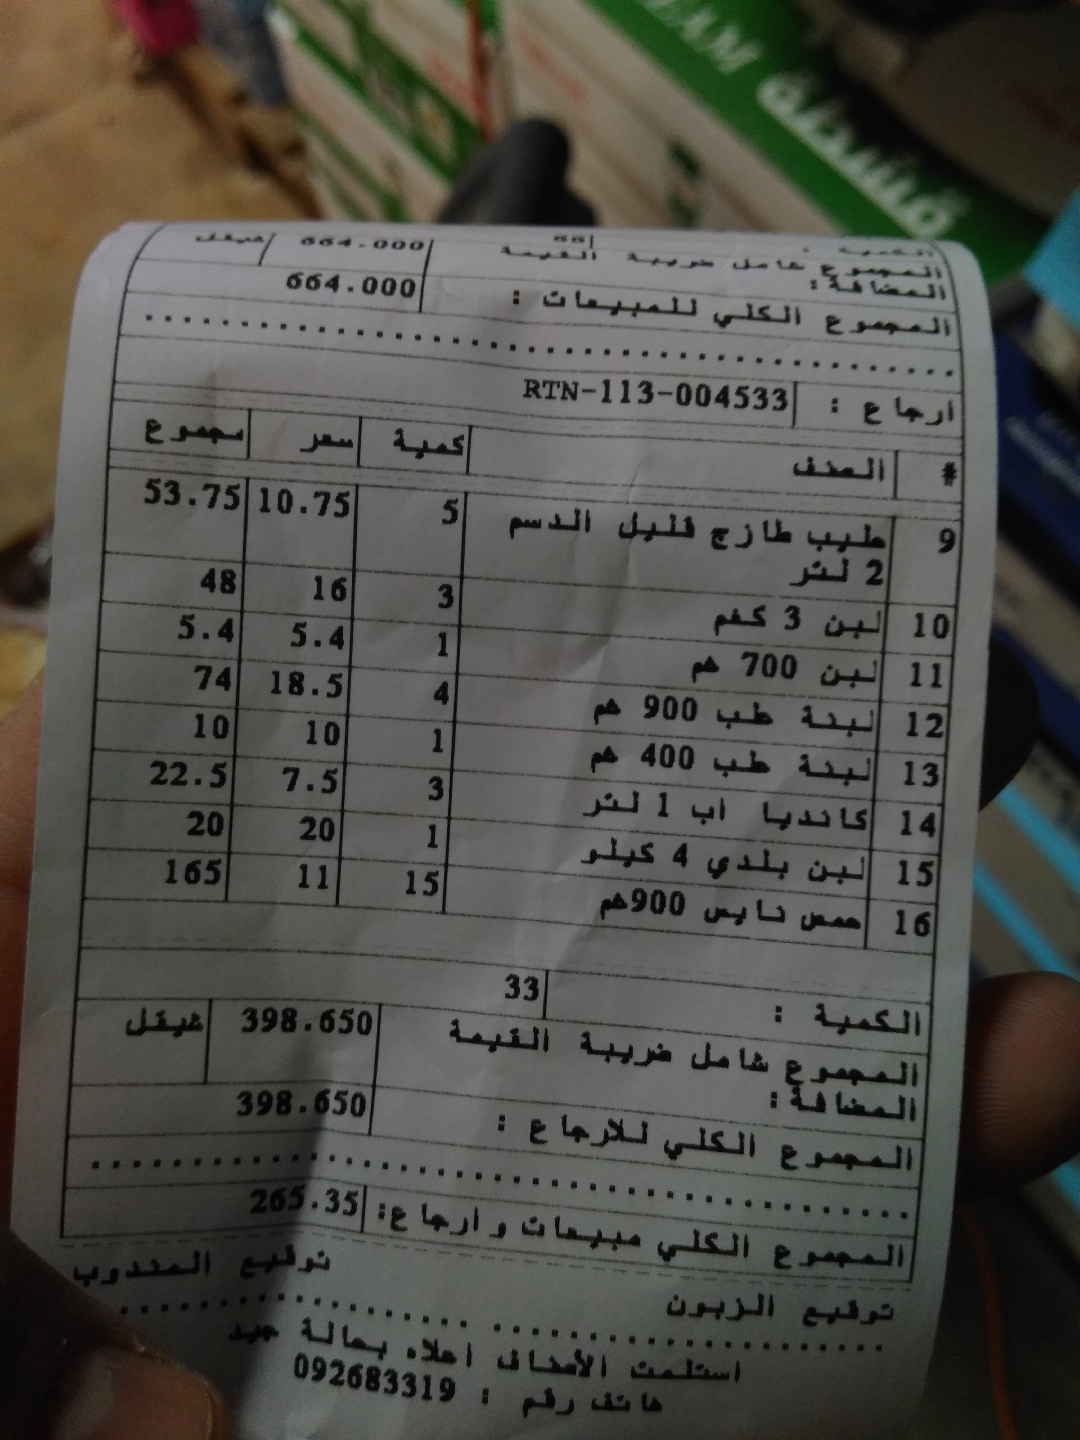 مشطة
الكمية : 66
المجموع شامل ضريبة القيمة المضافة: 664.000 شيقل
المجموع الكلي للمبيعات : 664.000
ارجاع : RTN-113-004533
# الصنف كمية سعر مجموع
9 طيب طازج قليل الدسم 5 10.75 53.75
2 لتر
10 لبن 3 كغم 3 16 48
11 لبن 700 غم 1 5.4 5.4
12 لبنة طب 900 غم 4 18.5 74
13 لبنة طب 400 غم 1 10 10
14 كانديا اب 1 لتر 3 7.5 22.5
15 لبن بلدي 4 كيلو 1 20 20
16 حمص نايس 900غم 15 11 165
الكمية : 33
المجموع شامل ضريبة القيمة 398.650 شيقل
المضافة:
المجموع الكلي للارجاع : 398.650
المجموع الكلي مبيعات وارجاع: 265.35
توقيع الزبون توقيع المندوب
استلمت الأصناف اعلاه بحالة جيد
هاتف رقم : 092683319